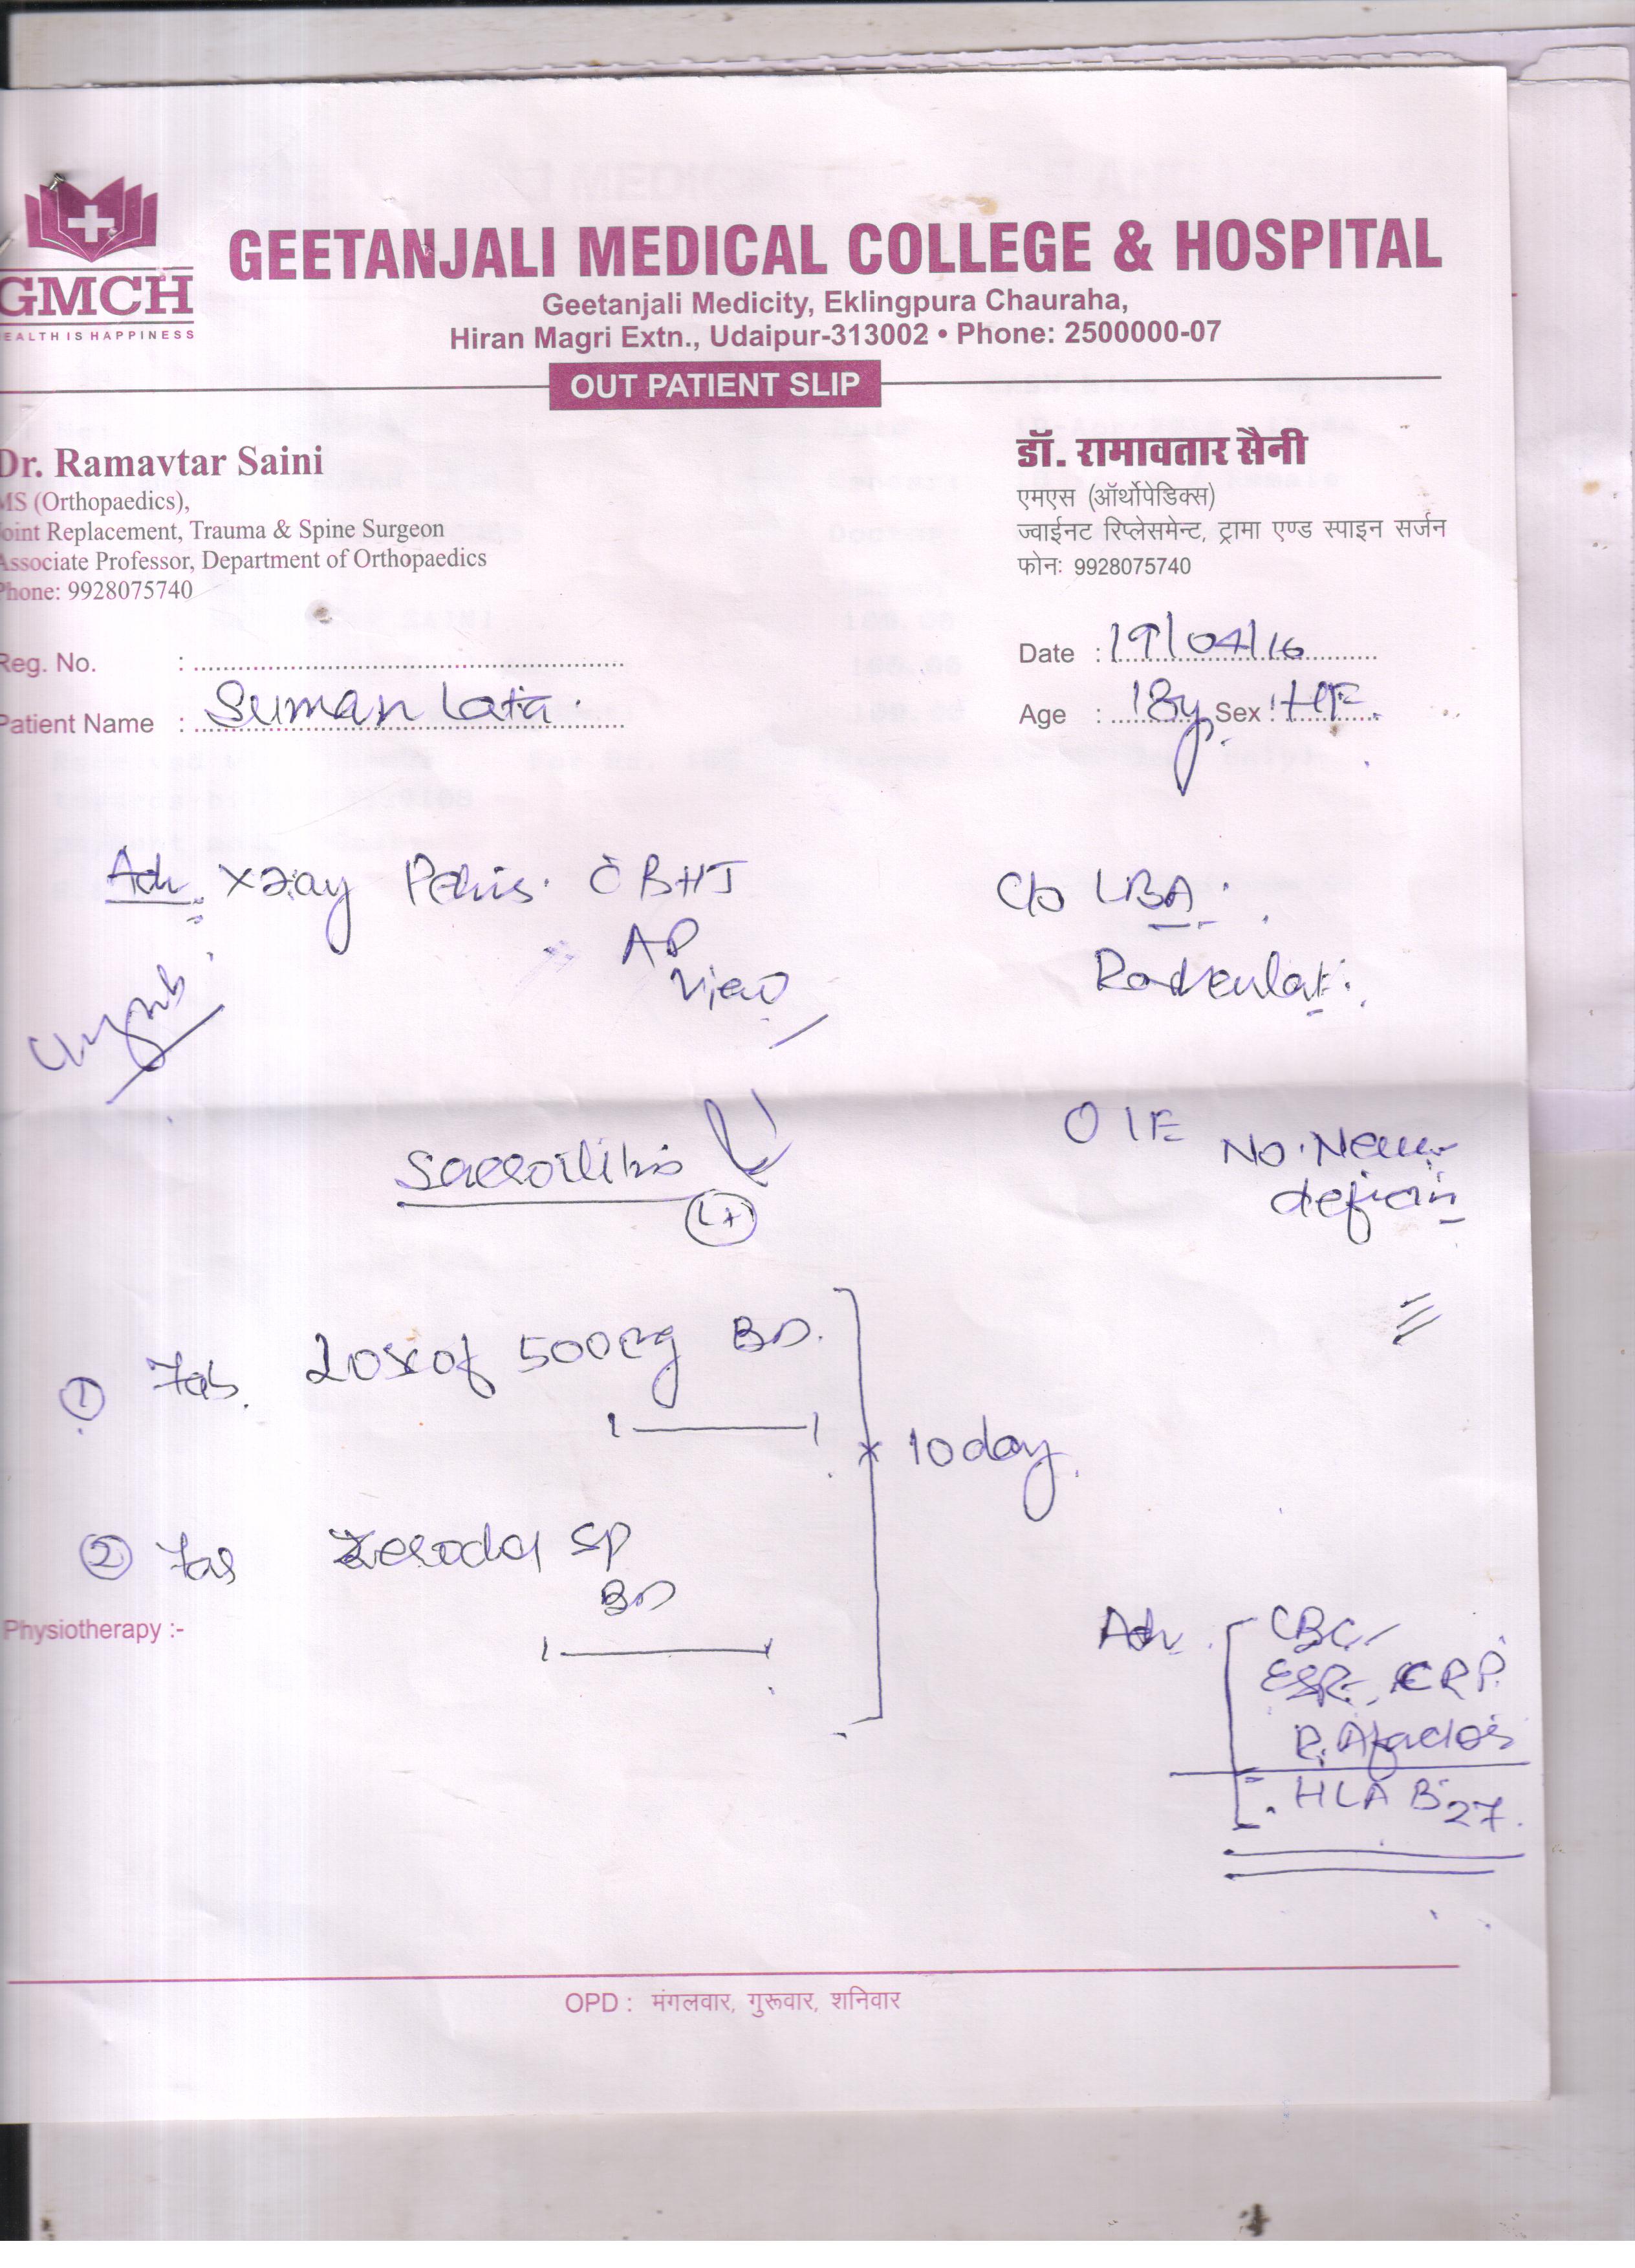 GMCH
EALTH IS HAPPINESS
GEETANJALI MEDICAL COLLEGE & HOSPITAL
Geetanjali Medicity, Eklingpura Chauraha,
Hiran Magri Extn., Udaipur-313002 • Phone: 2500000-07
OUT PATIENT SLIP
Dr. Ramavtar Saini
MS (Orthopaedics),
Joint Replacement, Trauma & Spine Surgeon
Associate Professor, Department of Orthopaedics
Phone: 9928075740
डॉ. रामावतार सैनी
एमएस (ऑर्थोपेडिक्स)
ज्वाईनट रिप्लेसमेन्ट, ट्रामा एण्ड स्पाइन सर्जन
फोनः 9928075740
Reg. No. :
Date : 19/04/16
Patient Name : Suman Lata.
Age : 18y Sex :
Adv. Xray Pelvis. c̄ BHJ
AP
View
C/o LBA.
O/E No. Neuro
Sacroilitis
Lt
① Tab. 500mg BD.
② Tab Zerodol SP
BD
x 10 day.
Physiotherapy :-
Adv. CBC
ESR, CRP.
R.A factor
HLA B27.
OPD : मंगलवार, गुरूवार, शनिवार